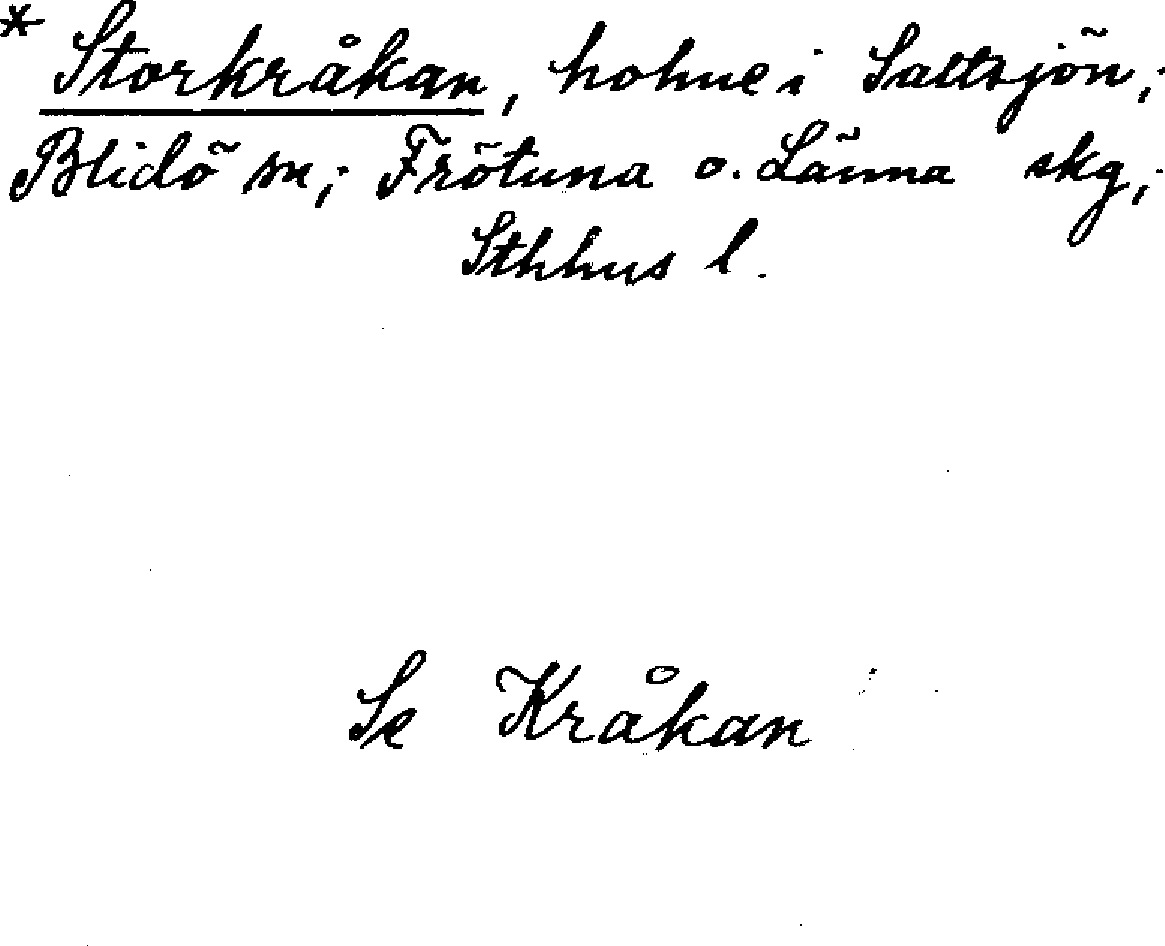 * Storkråkan, holme i Saltsjön;
Blidö sn; Frötuna o. Länna skg;
Sthhus l.
Se Kråkan